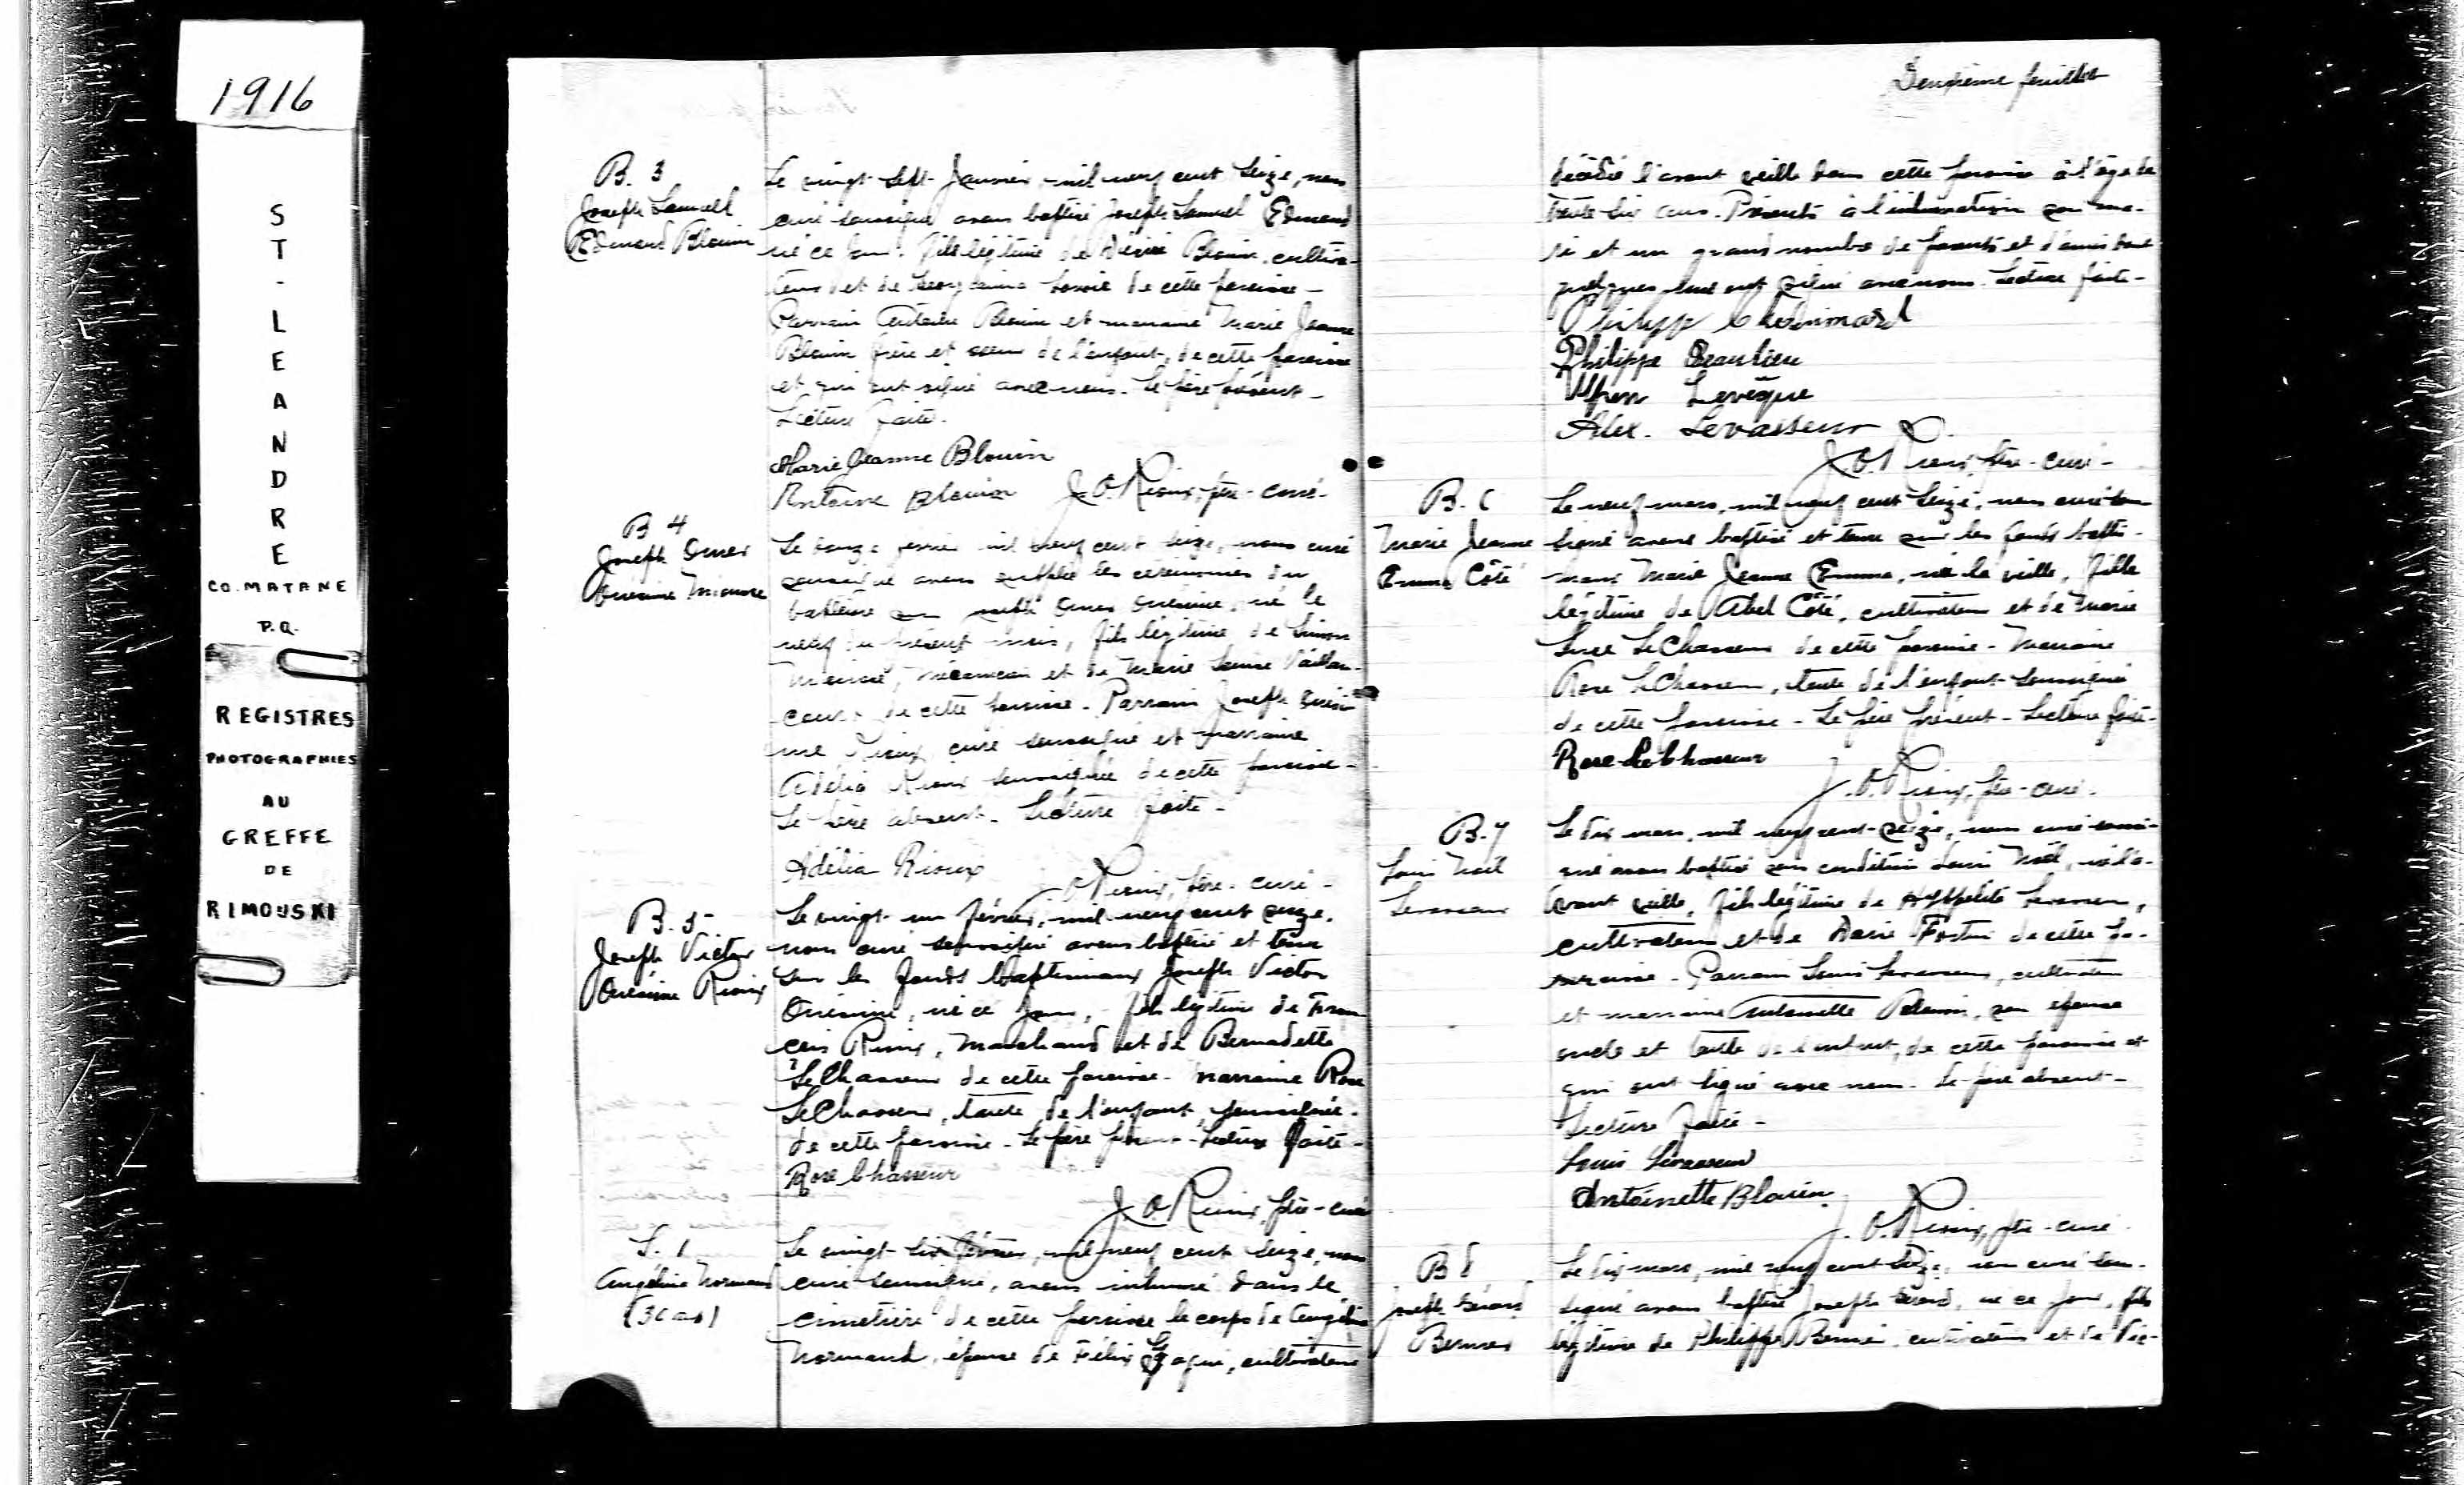 1916
ST-LEANDRE
CO. MATANE
P.Q.
REGISTRES
PHOTOGRAPHIES
AU
GREFFE
DE
RIMOUSKI
B. 3
Joseph Samuel
Edmond Blouin
Le vingt sept Janvier, mil neuf cent seize, nous
curé soussigné avons baptisé Joseph Samuel Edmond
né ce jour, fils légitime de Désiré Blouin, cultiva-
teur et de Georgianna Savoie de cette paroisse -
Parrain Antoine Blouin et marraine Marie Jeanne
Blouin frère et soeur de l'enfant, de cette paroisse
et qui ont signé avec nous. Le père présent -
Lecture faite.
Marie Jeanne Blouin
Antoine Blouin J. O. Rioux, ptre - curé -
B 4
Joseph Omer
Onésime
Le février mil neuf cent seize, nous curé
soussigné avons suppléé les cérémonies du
baptême Omer Onésime, né le
neuf du présent mois, fils légitime de Simon
mécanicien et de Marie Louise Vaillan-
court de cette paroisse. Parrain Joseph Onési-
me Rioux curé soussigné et marraine
Adélia Rioux soussignée de cette paroisse -
Le père absent - Lecture faite -
Adélia Rioux
J. O. Rioux, ptre - curé -
B. 5
Joseph Victor
Onésime Rioux
Le vingt un février, mil neuf cent seize,
nous curé soussigné avons baptisé et tenu
sur les fonds baptismaux Joseph Victor
Onésime, né ce jour, fils légitime de Fran
çois Rioux, Marchand et de Bernadette
LeChasseur de cette paroisse - marraine Rose
LeChasseur, tante de l'enfant, soussignée -
de cette paroisse - Le père présent - Lecture faite -
Rose Chasseur
J. O. Rioux, ptre - curé
S. 1
Angélina Normand
(36 ans)
Le vingt six février, mil neuf cent seize, nous
curé soussigné, avons inhumé dans le
cimetière de cette paroisse le corps de Angélina
Normand, épouse de Félix Gagné, cultivateur
Deuxième feuillet
décédée l'avant veille dans cette paroisse à l'âge de
trente six ans. Présents à l'inhumation son ma-
ri et un grand nombre de parents et d'amis dont
quelques uns ont signé avec nous. Lecture faite -
Philippe
Philippe Beaulieu
Levêque
Alex. Levasseur
J. O. Rioux, ptre - curé -
B. 6
Marie Jeanne
Emma Côté
Le neuf mars, mil neuf cent seize, nous curé sous
signé avons baptisé et tenu sur les fonds baptis-
maux Marie Jeanne Emma, née la veille, fille
légitime de Abel Côté, cultivateur et de Marie
Luce LeChasseur de cette paroisse - Marraine
Rose LeChasseur, tante de l'enfant soussignée
de cette paroisse - Le père présent - Lecture faite -
Rose LeChasseur
J. O. Rioux, ptre - curé -
B. 7
Louis Noël
Levasseur
Le dix mars, mil neuf cent seize, nous curé soussi-
gné avons baptisé sous condition Louis Noël, né l'a-
vant veille, fils légitime de Hyppolite Levasseur,
cultivateur et de Marie Fortin de cette pa-
roisse - Parrain Louis Levasseur, cultivateur
et marraine Antoinette Blouin, son épouse
oncle et tante de l'enfant, de cette paroisse et
qui ont signé avec nous - Le père absent -
Lecture faite -
Louis Levasseur
Antoinette Blouin
J. O. Rioux, ptre - curé -
B 8
Joseph Gérard
Bernier
Le dix mars, mil neuf cent seize, nous curé sous-
signé avons baptisé Joseph Gérard, né ce jour, fils
légitime de Philippe Bernier, cultivateur et de Vic-